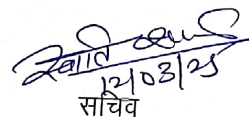 स्वाति
12/03/25
सचिव